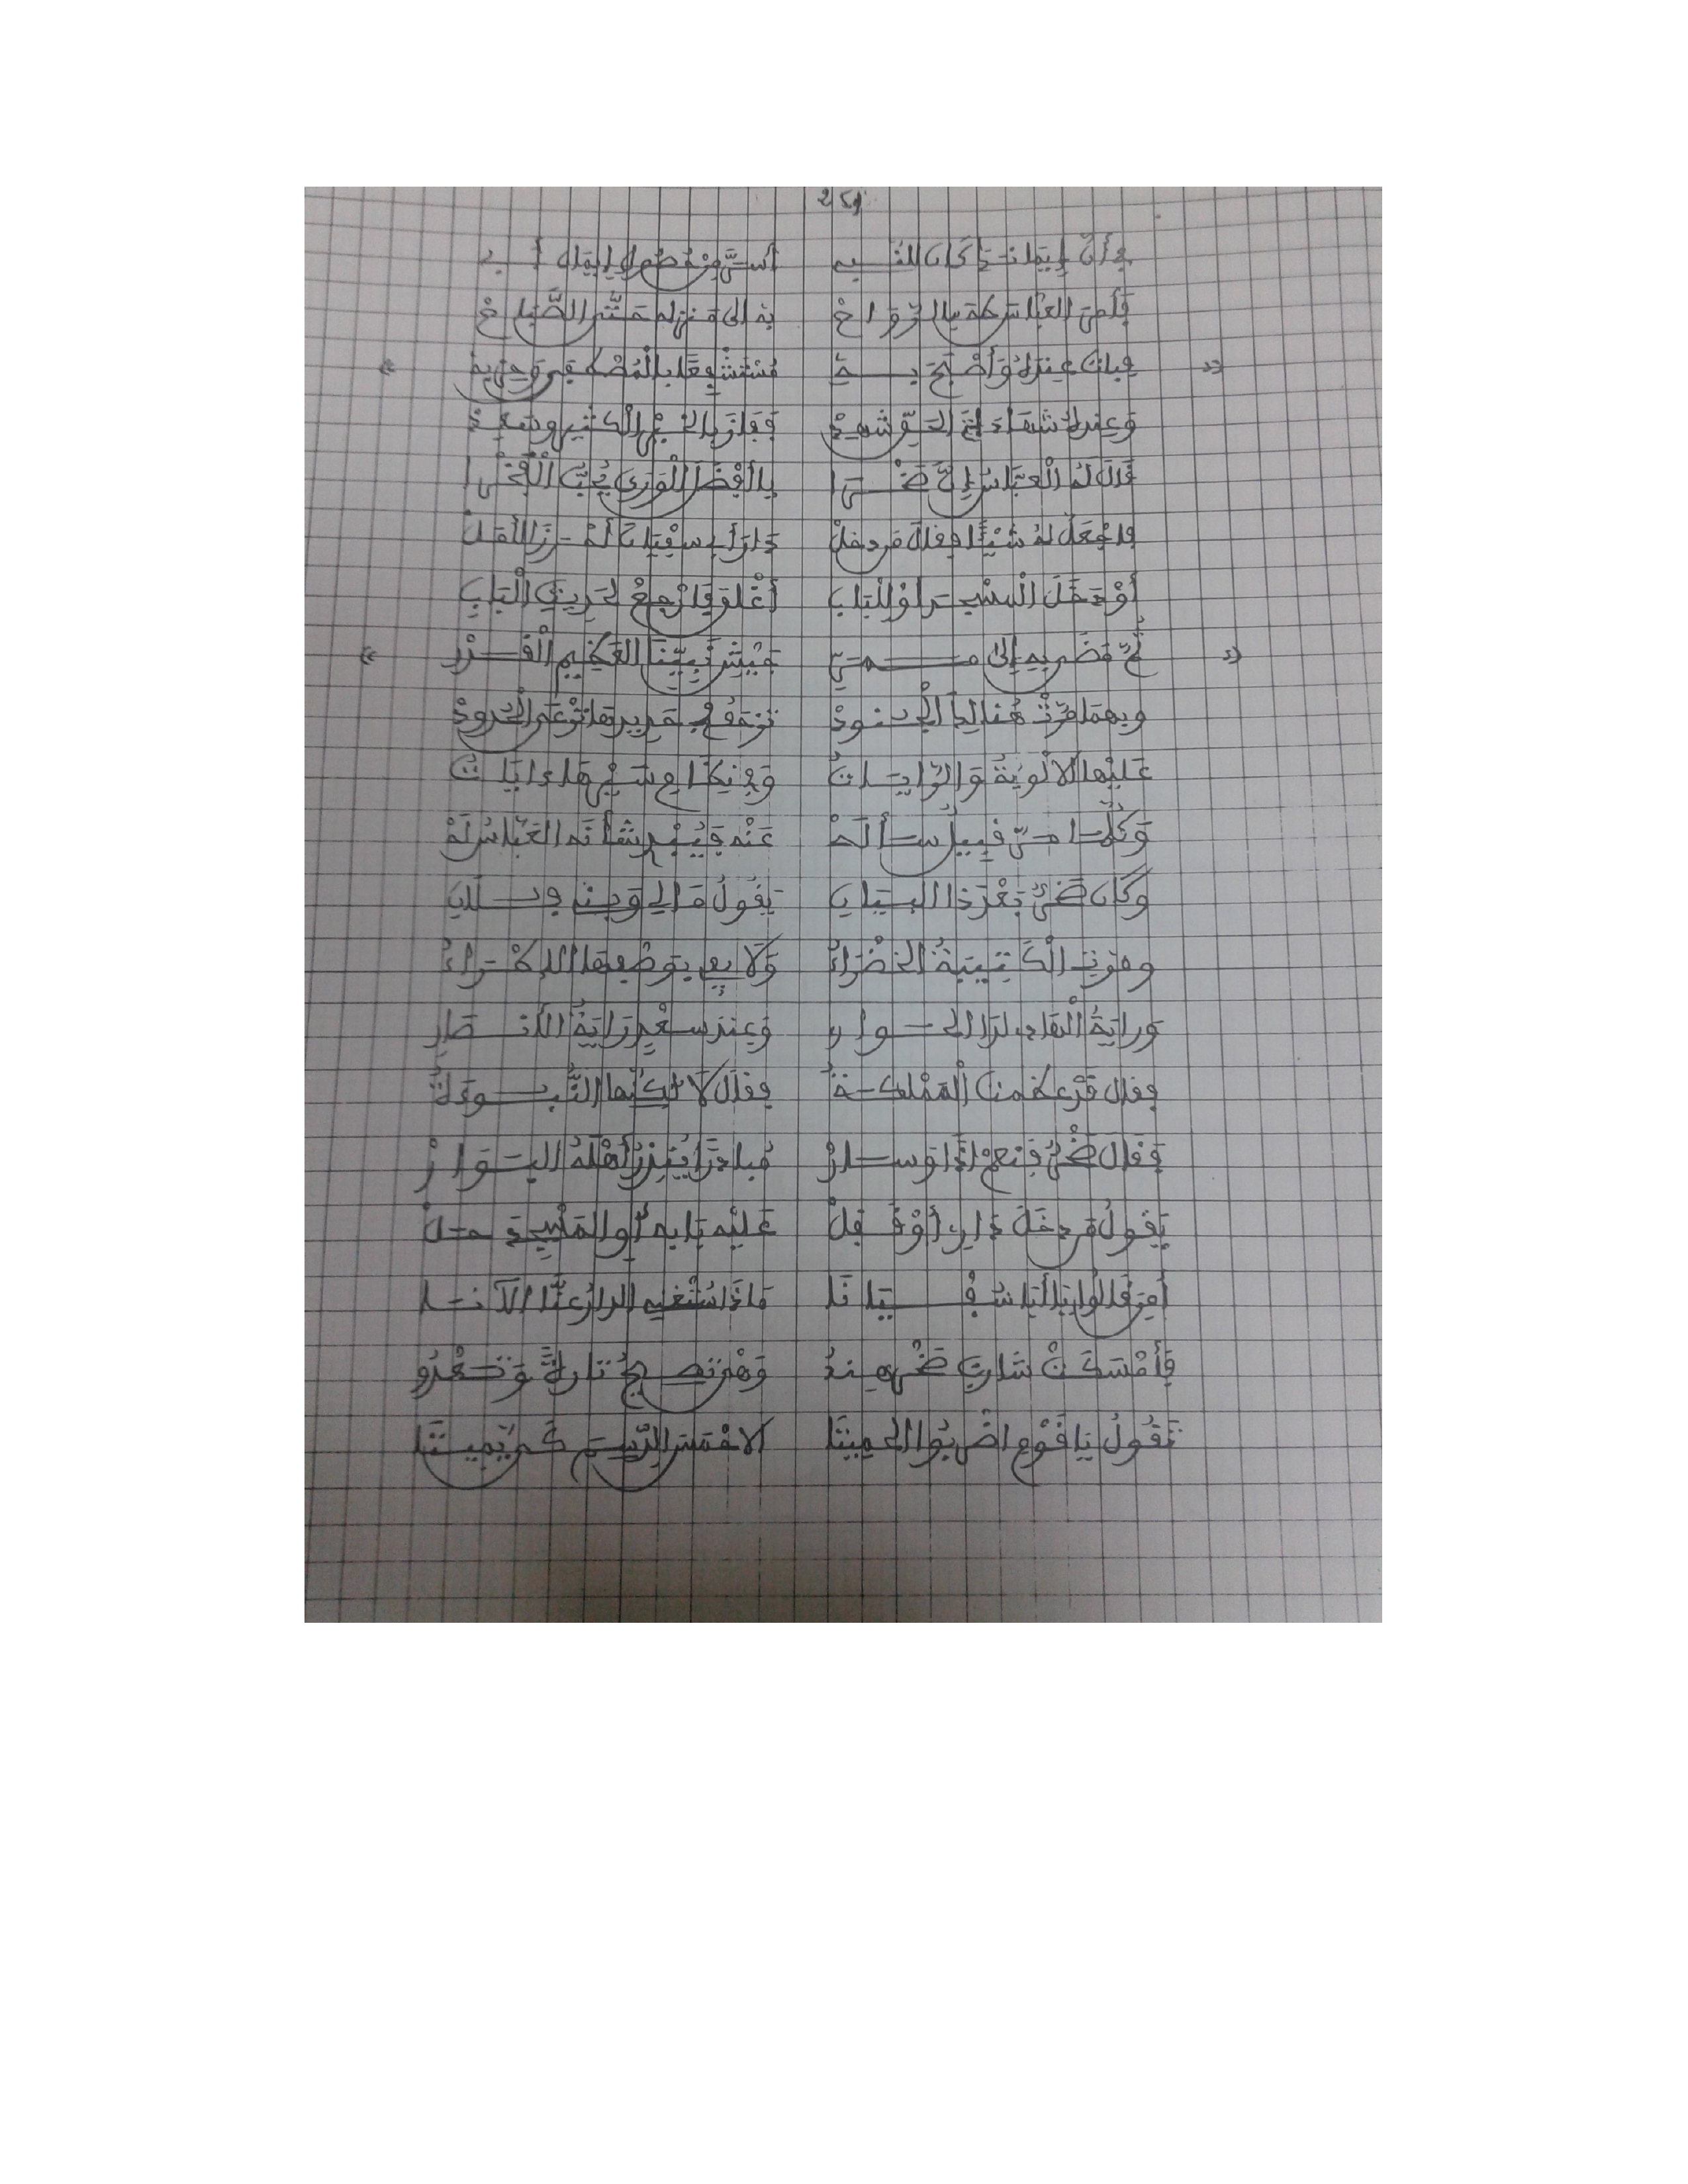 251
فأن إيمانك كان للنبي أسر من حصول إيمان أبي
فأمر العباس طه بالرواح به إلى منزله حتى الصباح
فبات عنده وأصبح به مستشفعا بالمصطفى وحزبه
وعنده شهادة الحق شهد ففاز بالخير الكثير وسعد
قال له العباس إن صخرا يا أفضل الورى يحب الفخرا
فاجعل له شيئا فقال من دخل دار أبي سفيان أحرز الأمل
أو دخل المسجد أو للباب أغلق فارجع لحريق الباب
ثم مضى به إلى ممر جيش نبينا العظيم القدر
وبهما مرت هنالك الجنود
عليها الألوية والرايات
وكلما مر قبيل سأله عنه فينبئ بشأنه العباس له
وكان صخر بعد ذا البيان يقول مالي وبني فلان
ومرت الكتيبة الخضراء ولا يفي بوصفها الإطراء
وراية الهادي لدى الحواري وعند سعد راية الأنصار
فقال قد عظمت المملكة فقال لا لكنها النبوءة
فقال صخر فنعم إذا وسار مبادرا ينذر أهله البوار
يقول من دخل داري أو قفل عليه بابه أو المسجد حل
أمن قالوا يا أبا سفيانا ماذا ستغني الدار عنا الآنا
فأمسكت شارب صخر هند وهي تصيح تارة وتعدو
تقول يا قوم اضربوا الحميتا الأحمس الدسم كي يميتا